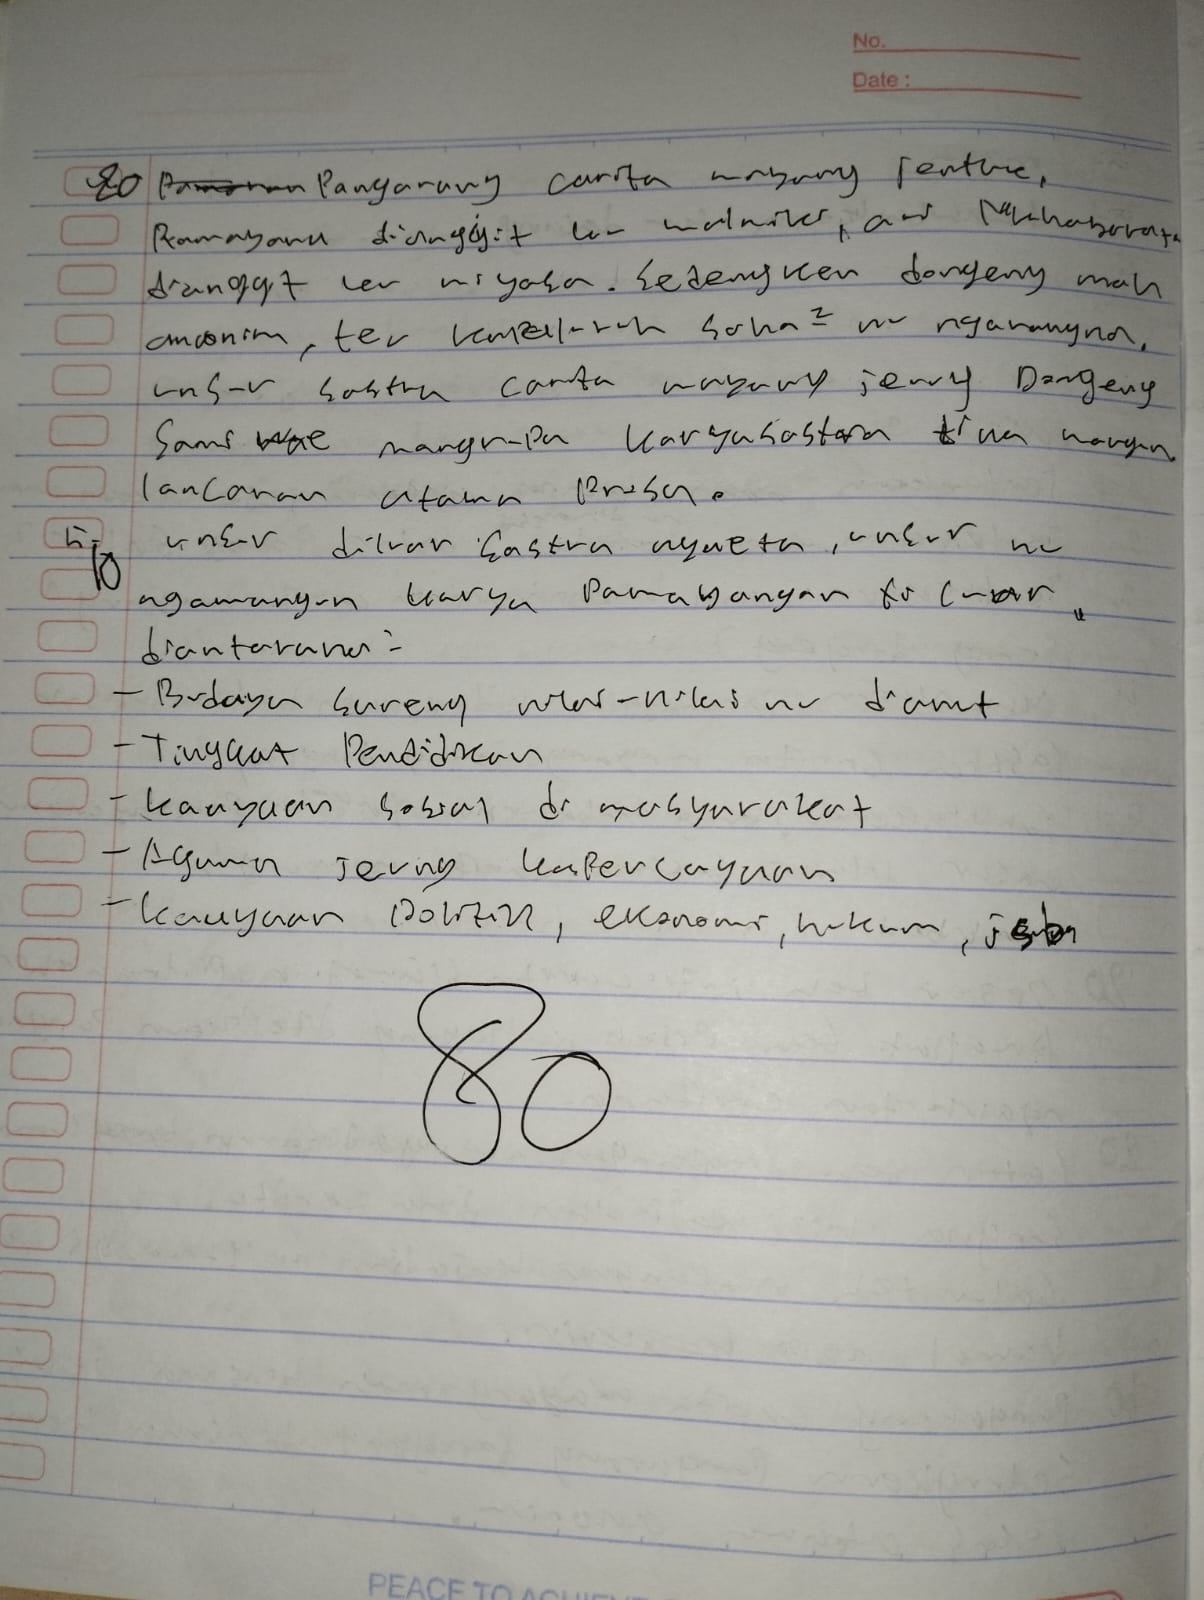 No.
Date :
20 Pangarang carita wayang jentre,
Ramayana dianggit ku walmiki, ari Mahabarata
dianggit ku wiyasa. Sedengken dongeng mah
anonim, teu kapaluruh saha² nu ngarangna,
unsur sastra carita wayang jeung Dongeng
Sami wae mangrupa karyasastra dina wangun
lancaran atawa Prosa.
5. unsur diluar Sastra nyaeta, unsur nu
10 ngawangun karya Pamayangan di luar,
diantarana:
- Budaya sareng nilai-nilai nu dianut
- Tingkat Pendidikan
- kaayaan sosial di masyarakat
- Agama jeung kapercayaan
- kaayaan politik, ekonomi, hukum, jsb
80
PEACE TO